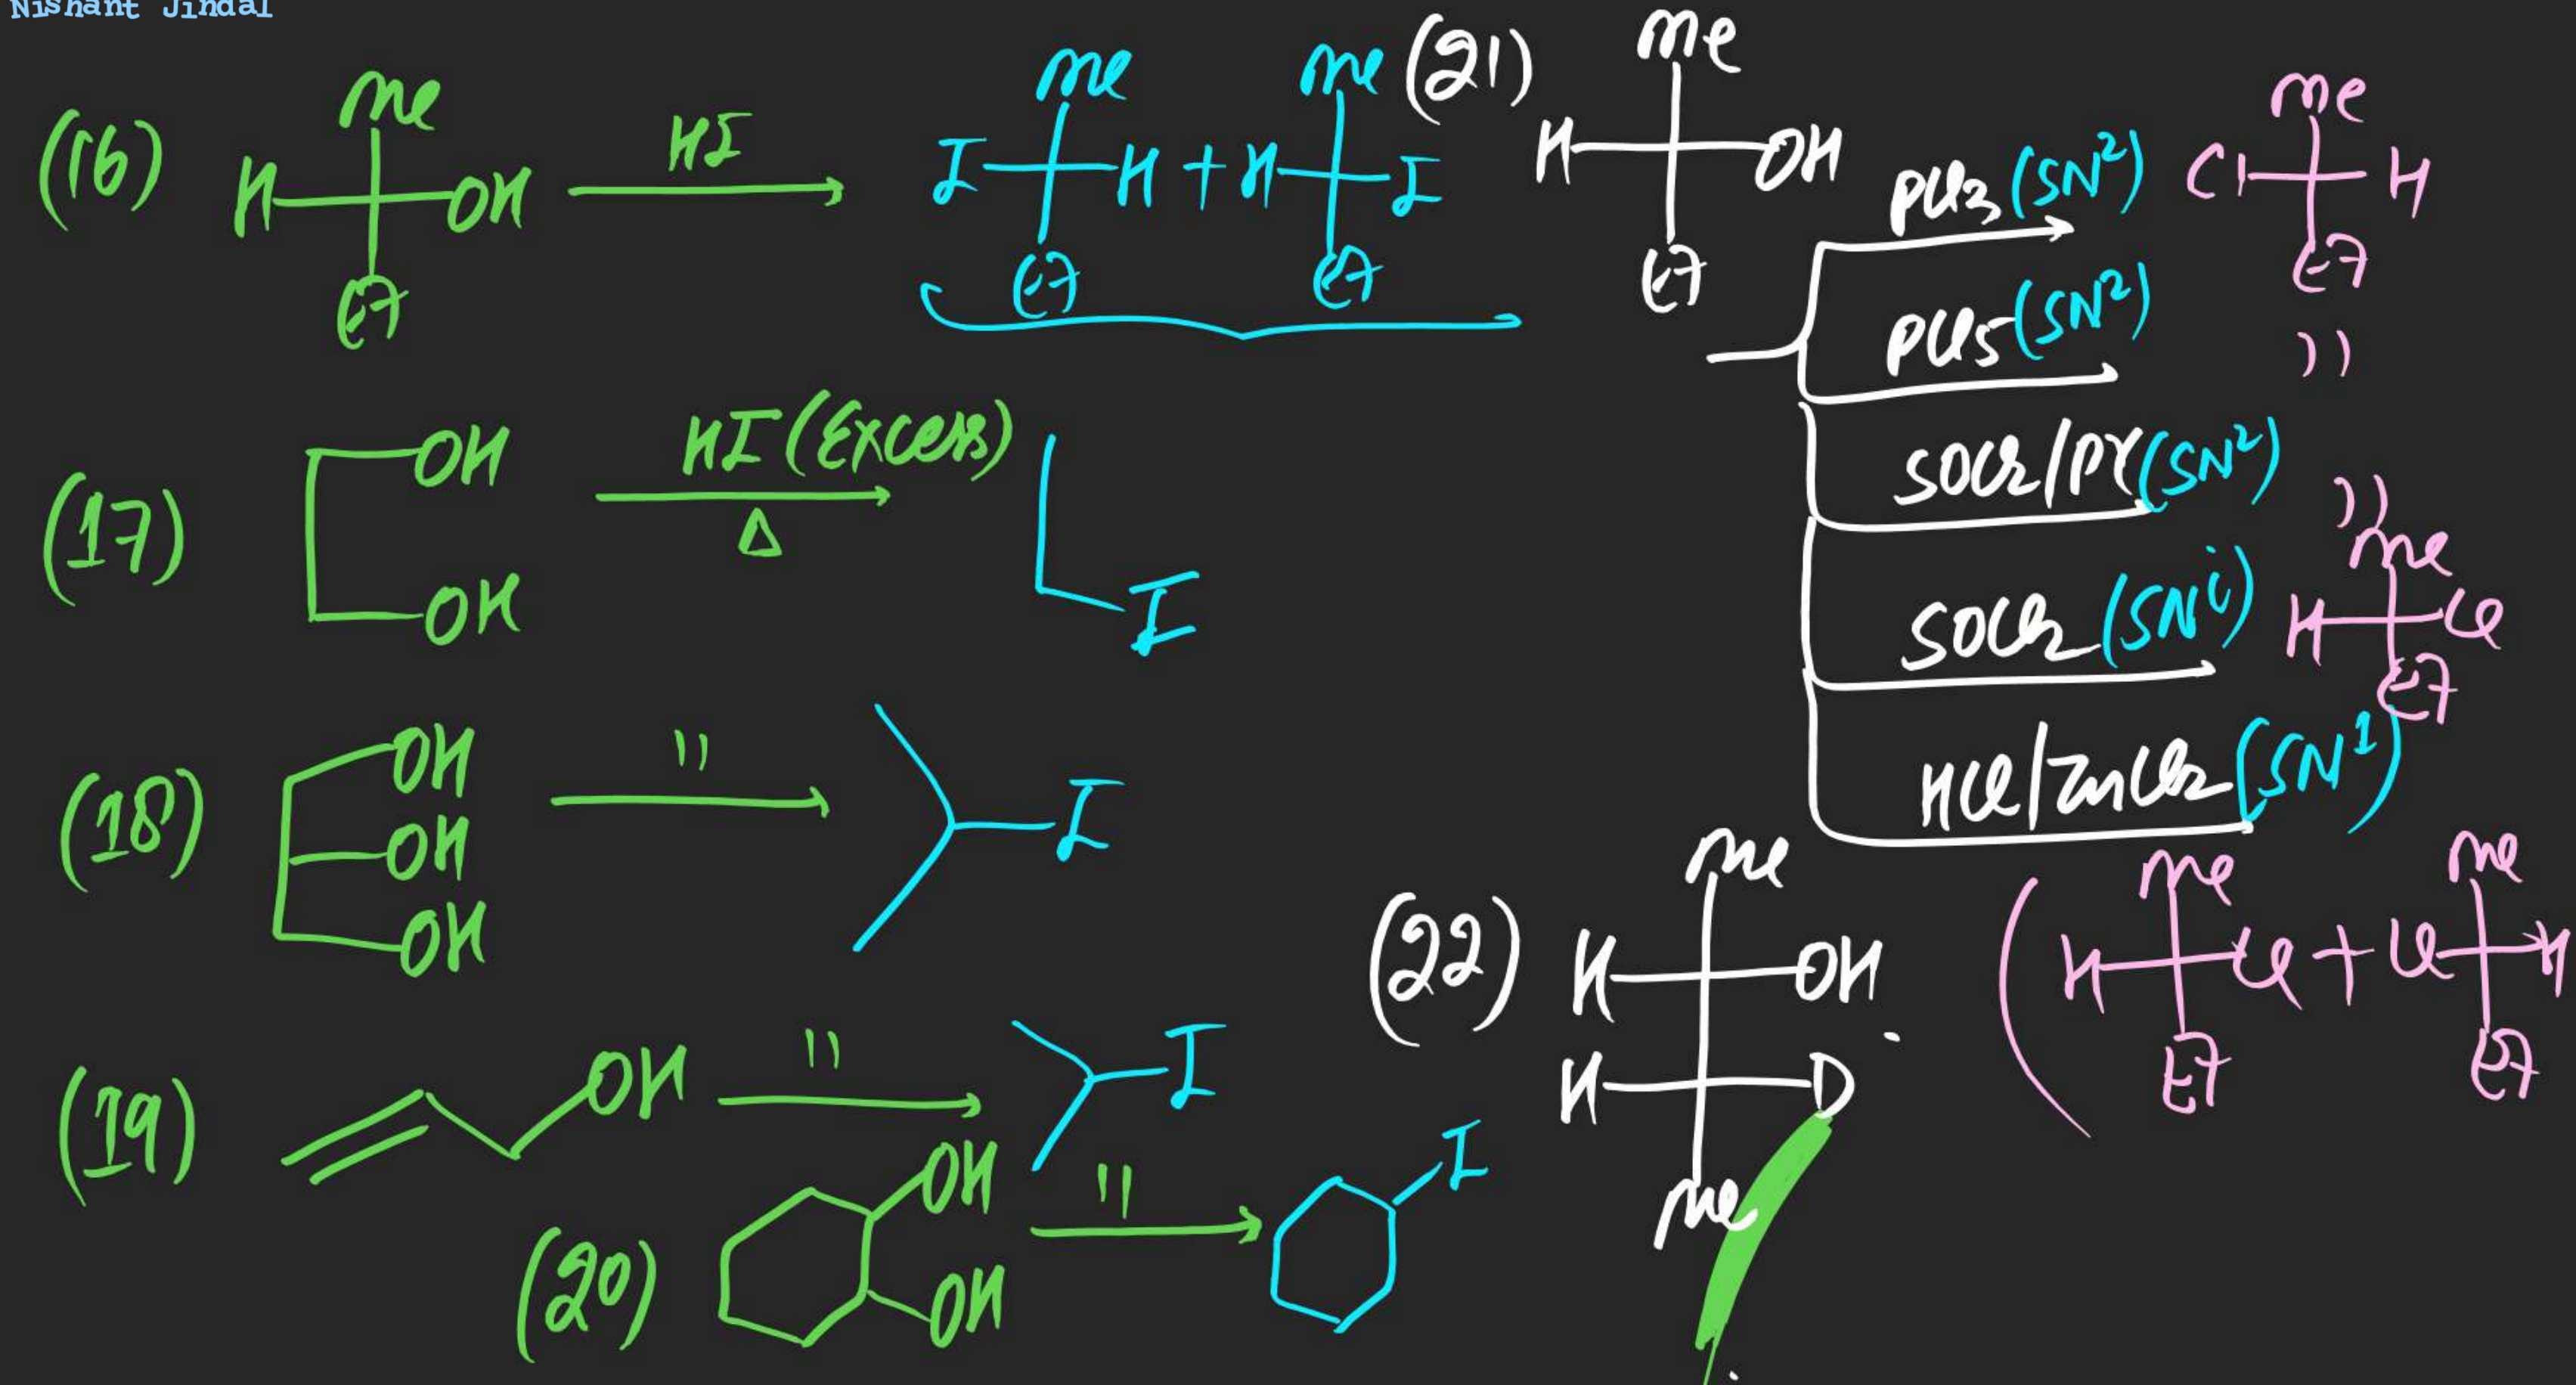 Nishant Jindal
(16)
Me
H OH
Et
HI
Me
I H
Et
+
Me
H I
Et
(17)
OH
OH
HI (Excess)
Δ
I
(18)
OH
OH
OH
"
I
(19)
OH
"
I
(20)
OH
OH
"
I
(21)
Me
H OH
Et
PCl3 (SN2)
Me
Cl H
Et
PCl5 (SN2)
"
SOCl2/PY (SN2)
"
SOCl2 (SNi)
Me
H Cl
Et
HCl/ZnCl2 (SN1)
(
Me
H Cl
Et
+
Me
Cl H
Et
(22)
Me
H OH
H D
Me